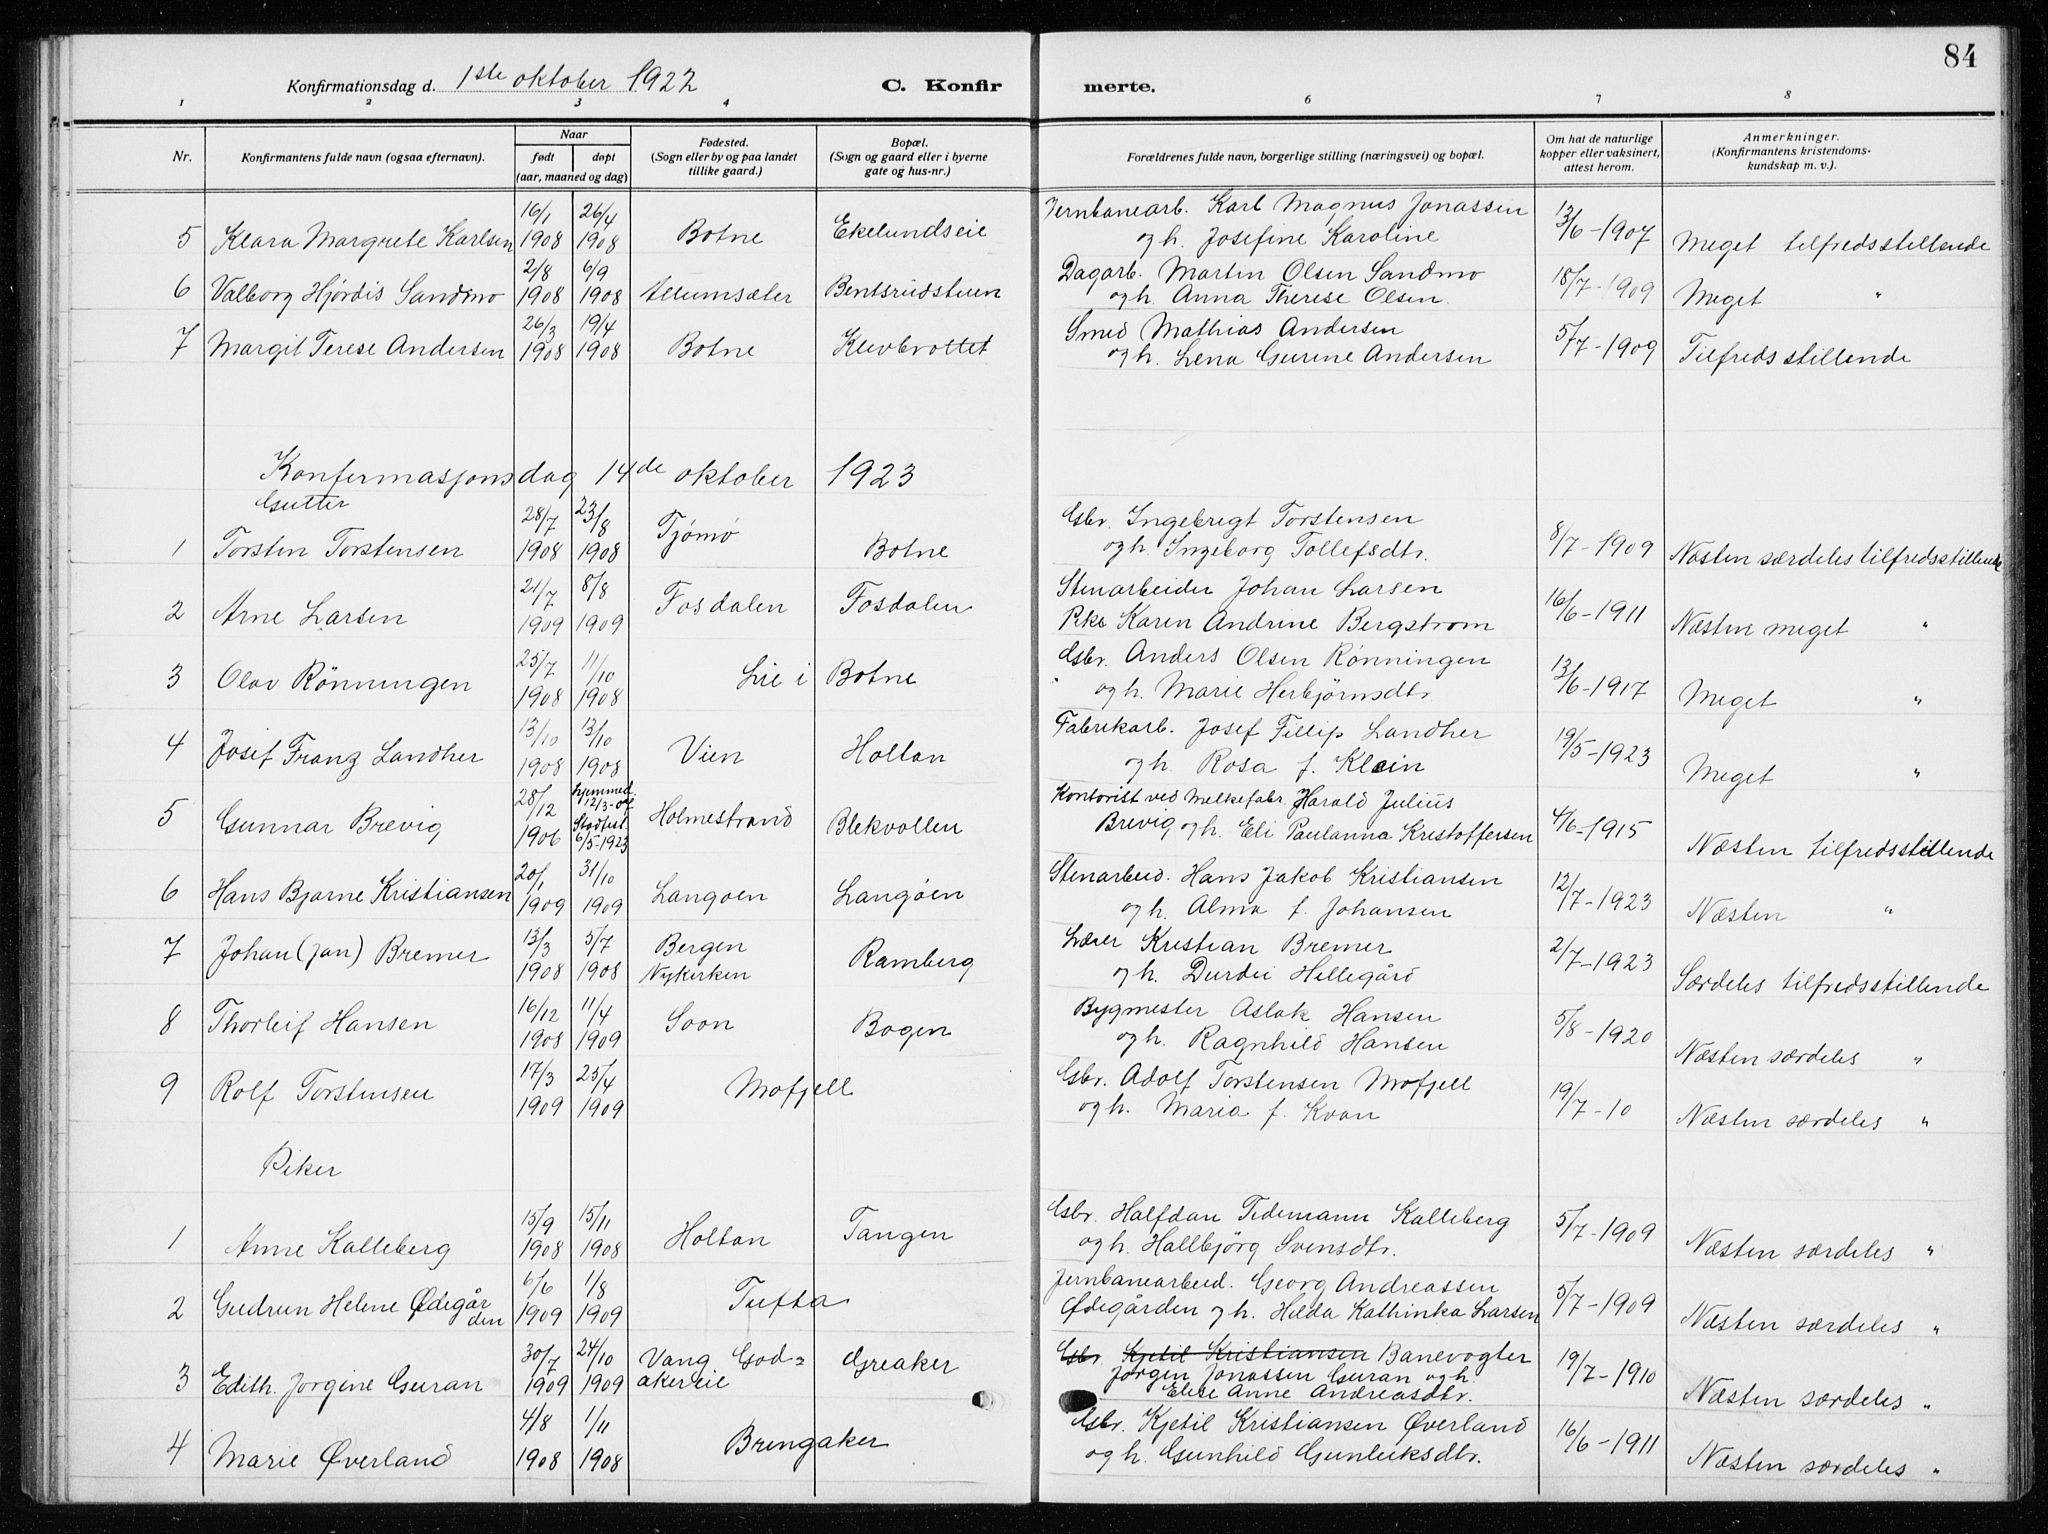 84
Konfirmationsdag d. 1ste oktober 1922 C. Konfir merte.
1 2 3 4 6 7 8
Nr. Konfirmantens fulde navn (ogsaa efternavn). Naar født døpt (aar, maaned og dag) Fødested. (Sogn eller by og paa landet tillike gaard.) Bopæl. (Sogn og gaard eller i byerne gate og hus-nr.) Forældrenes fulde navn, borgerlige stilling (næringsvei) og bopæl. Om hat de naturlige kopper eller vaksinert, attest herom. Anmerkninger. (Konfirmantens kristendoms-kundskap m. v.).
5 Klara Margrete Karlsen 16/1 1908 26/4 1908 Botne Ekelundseie Jernbanearb. Karl Magnus Jonassen og h. Josefine Karoline 13/6-1907 Meget tilfredsstillende
6 Valborg Hjørdis Sandmo 2/8 1908 6/9 1908 Bentsrudstuen Dagarb. Martin Olsen Sandmo og h. Anna Therese Olsen. 18/7-1909 Meget "
7 Margit Terese Andersen 26/3 1908 19/4 1908 Botne Klevbrottet Smed Mathias Andersen og h. Lena Gurine Andersen 5/7-1909 Tilfredsstillende
Konfermasjonsdag 14de oktober 1923
Gutter
1 Torsten Torstensen 28/7 1908 23/8 1908 Tjømø Botne Gbr. Ingebrigt Torstensen og h. Ingeborg Tollefsdtr. 8/7-1909 Næsten særdeles tilfredsstillende
2 Arne Larsen 21/7 1909 8/8 1909 Fosdalen Fosdalen Stenarbeider Johan Larsen Pike Karen Andrine Bergstrøm 16/6-1911 Næsten meget "
3 Olav Rønningen 25/7 1908 11/10 1908 Lie i Botne Gbr. Anders Olsen Rønningen og h. Marie Herbjørnsdtr. 13/6-1917 Meget "
4 Josef Franz Landher 13/10 1908 13/10 1908 Vien Holtan Fabrikarb. Josef Fillip Landher og h. Rosa f. Klein 19/5-1923 Meget "
5 Gunnar Brevig 28/12 1906 hjemmed. 12/3-07 Stadfest 6/5-1923 Holmestrand Blekvollen Kontorist ved Melkefabr. Harald Julius Brevig og h. Eli Paulanna Kristoffersen 4/6-1915 Næsten tilfredsstillende
6 Hans Bjarne Kristiansen 20/1 1909 31/10 1909 Langøen Langøen Stenarbeid. Hans Jakob Kristiansen og h. Alma f. Johansen 12/7-1923 Næsten "
7 Johan (Jan) Bremer 13/3 1908 5/7 1908 Bergen Nykirken Ramberg Lærer Kristian Bremer og h. Durdei Hillegård 2/7-1923 Særdeles tilfredsstillende
8 Thorleif Hansen 16/12 1908 11/4 1909 Soon Bogen Bygmester Aslak Hansen og h. Ragnhild Hansen 5/8-1920 Næsten særdeles "
9 Rolf Torstensen 17/3 1909 25/4 1909 Mofjell Gbr. Adolf Torstensen Mofjell og h. Maria f. Kvan 19/7-10 Næsten særdeles "
Piker
1 Anne Kalleberg 15/9 1908 15/11 1908 Holtan Tangen Gbr. Halfdan Tidemann Kalleberg og h. Hallbjörg Svensdtr. 5/7-1909 Næsten særdeles "
2 Gudrun Helene Ødegården 6/6 1909 1/8 1909 Tufta Jernbanearbeid. Georg Andreassen Ødegården og h. Hilda Kathinka Larsen 5/7-1909 Næsten særdeles "
3 Edith Jørgine Guran 30/7 1909 24/10 1909 Vang. Godakereie Greaker Gbr. Kjetil Kristiansen Banevogter Jørgen Jonassen Guran og h. Elise Anne Andreasdtr. 19/7-1910 Næsten særdeles "
4 Marie Øverland 4/8 1908 1/11 1908 Bringaker Gbr. Kjetil Kristiansen Øverland og h. Gunhild Gunleiksdtr. 16/6-1911 Næsten særdeles "